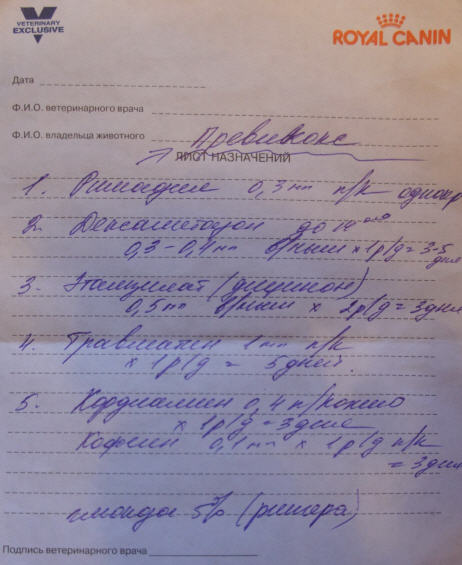 VETERINARY
EXCLUSIVE
ROYAL CANIN
Дата
Ф.И.О. ветеринарного врача
Ф.И.О. владельца животного Превикокс
ЛИСТ НАЗНАЧЕНИЙ
1. Римадил 0,3 мл п/к однокр
2. Дексаметазон до 14
0,3-0,4 мл в/мыш х 1р/д = 3-5 дней
3. Этамзилат (дицинон)
0,5 мл в/мыш х 2р/д = 3 дня
4. Травматин 1 мл п/к
х 1р/д = 5 дней.
5. Кордиамин 0,4 п/кожно
х 1р/д = 3 дня
Кофеин 0,1 мл х 1р/д п/к
= 3 дня
глюкоза 5% (рингера)
Подпись ветеринарного врача